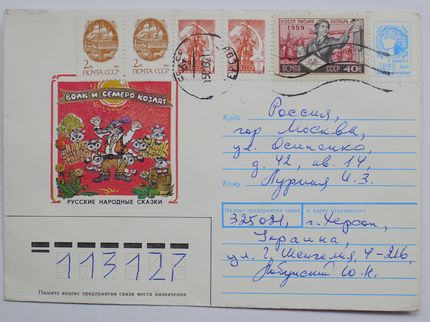 2к ПОЧТА СССР
2к ПОЧТА СССР
НЕДЕЛЯ ПИСЬМА ОКТЯБРЬ
1959
ПОЧТА СССР 40 коп
ВОЛК И СЕМЕРО КОЗЛЯТ
РУССКИЕ НАРОДНЫЕ СКАЗКИ
Куда Россия,
гор Москва,
ул. Осипенко,
д. 42, кв. 14,
Кому Лурия И.З.
Индекс предприятия связи и адрес отправителя
325021, г. Херсон,
Украина,
ул. Г. Шенгелия, 4-216,
113127
Пишите индекс предприятия связи места назначения